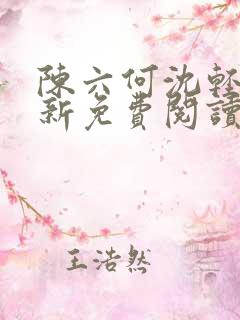 陳六何沈輕
新免費閱讀
王浩然